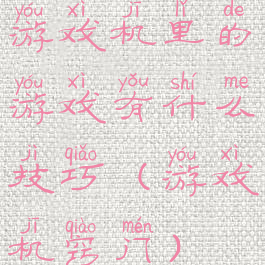 yóu xì jī lǐ de
游戏机里的
yóu xì yǒu shí me
游戏有什么
jì qiǎo yóu xì
技巧（游戏
jī qiào mén
机窍门）